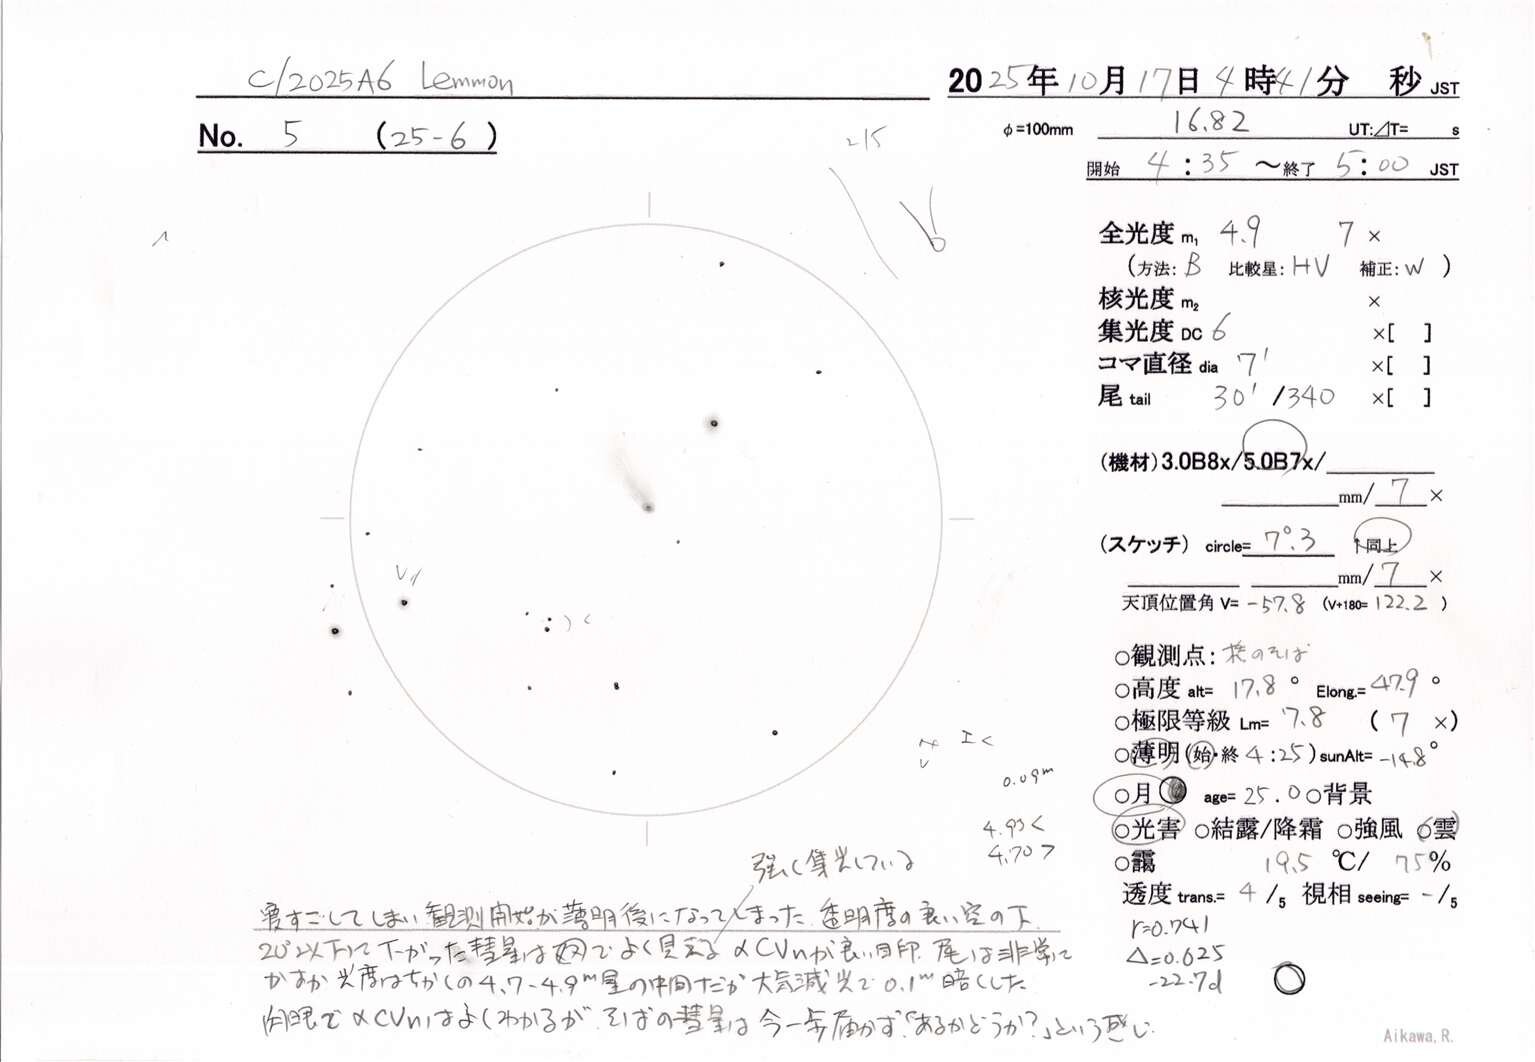 C/2025A6 Lemmon
2025年10月17日4時41分 秒 JST
No. 5 (25-6)
φ=100mm 16.82 UT:⊿T= s
開始 4:35 ～終了 5:00 JST
215
全光度 m₁ 4.9 7 ×
(方法: B 比較星: HV 補正: W )
核光度 m₂ ×
集光度 DC 6 ×[ ]
コマ直径 dia 7' ×[ ]
尾 tail 30' /340 ×[ ]
(機材) 3.0B8x/5.0B7x/
mm/ 7 ×
(スケッチ) circle= 7°.3 ↑同上
mm/ 7 ×
天頂位置角 V= -57.8 (V+180= 122.2 )
○観測点: 桟のそば
○高度 alt= 17.8 ° Elong.= 47.9 °
○極限等級 Lm= 7.8 ( 7 ×)
○薄明(始・終 4:25)sunAlt= -14.8°
○月 age= 25.0 ○背景
○光害 ○結露/降霜 ○強風 ○雲
○靄 19.5 ℃/ 75%
透度 trans.= 4 /5 視相 seeing= - /5
r=0.741
Δ=0.625
-22.7d
0.09m
4.93<
4.70>
強く集光している
寝すごしてしまい観測開始が薄明後になってしまった 透明度の良い空の下
20°以下に下がった彗星は双でよく見える αCVnが良い目印. 尾は非常に
かすか 光度はちかくの4.7-4.9m星の中間だが大気減光で0.1m暗くした
肉眼でαCVnはよくわかるが、そばの彗星は今一歩届かず「あるかどうか?」という感じ.
Aikawa,R.